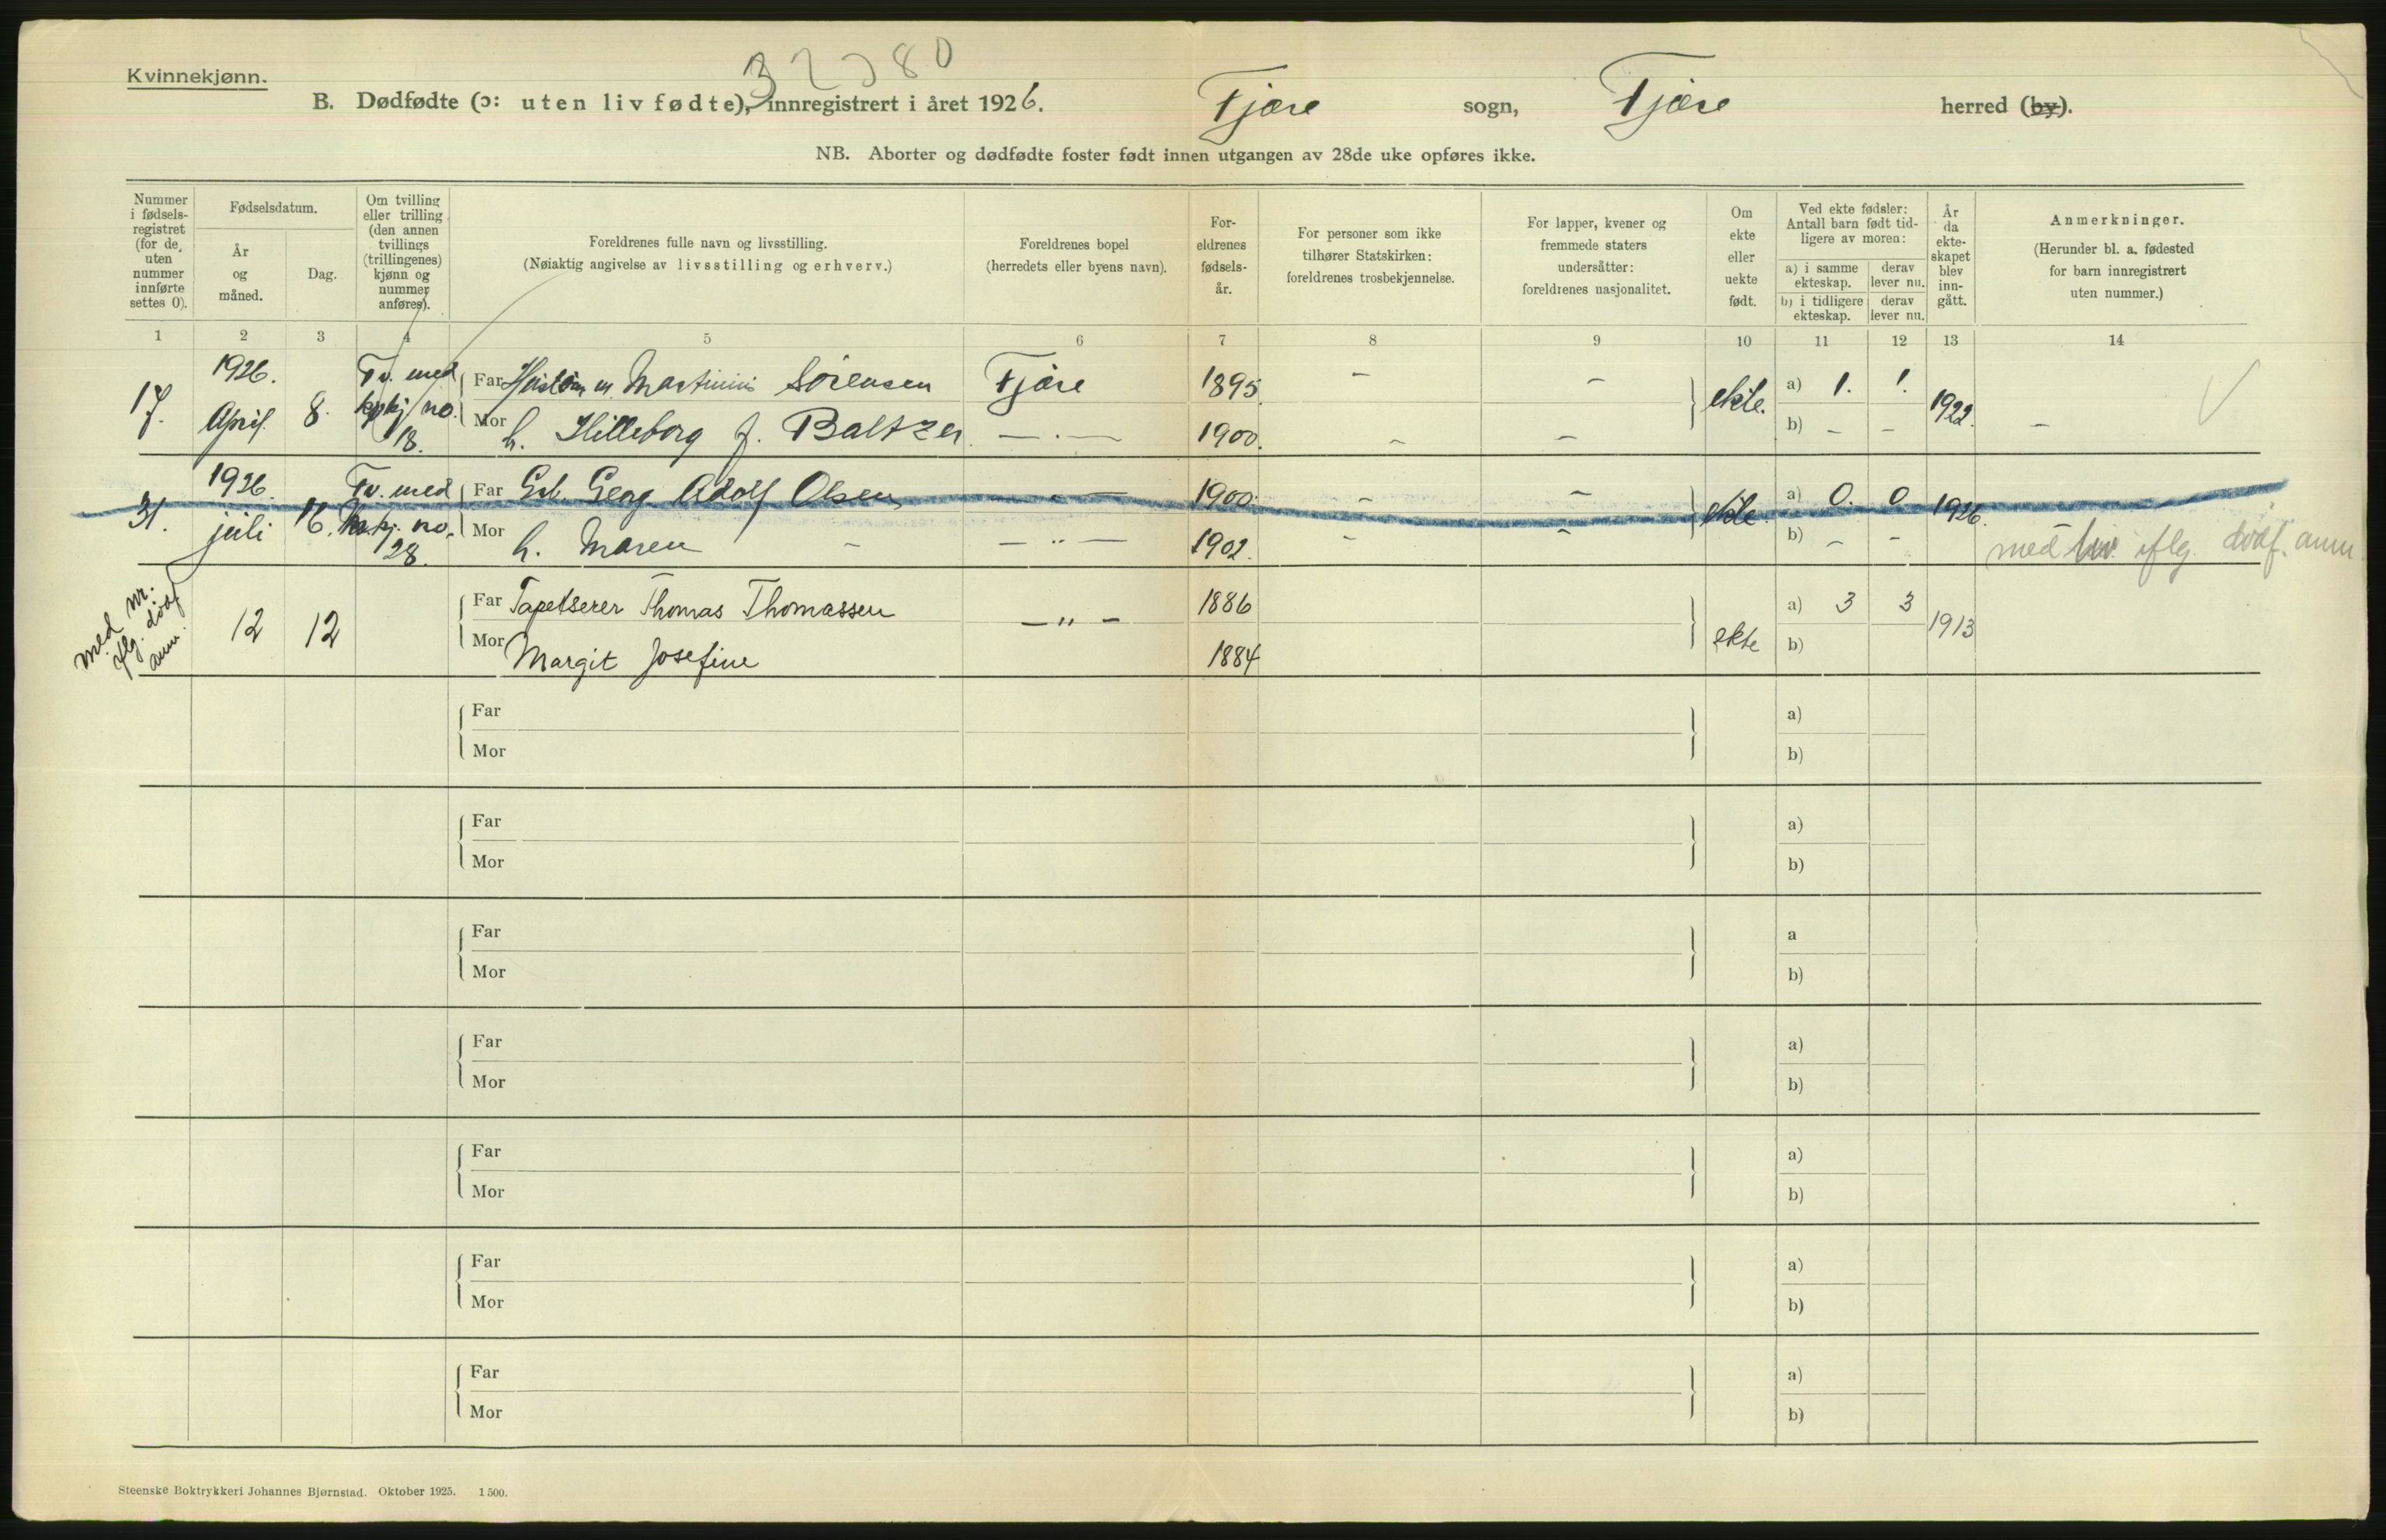 Kvinnekjønn.
B. Dødfødte (ɔ: uten liv fødte), innregistrert i året 1926. Fjære sogn, Fjære herred (by).
NB. Aborter og dødfødte foster født innen utgangen av 28de uke opføres ikke.
Nummer i fødsels- registret (for de uten nummer innførte settes 0).
Fødselsdatum.
År og måned.
Dag.
Om tvilling eller trilling (den annen tvillings (trillingenes) kjønn og nummer anføres).
Foreldrenes fulle navn og livsstilling.
(Nøiaktig angivelse av livsstilling og erhverv.)
Foreldrenes bopel
(herredets eller byens navn).
For- eldrenes fødsels- år.
For personer som ikke tilhører Statskirken: foreldrenes trosbekjennelse.
For lapper, kvener og fremmede staters undersåtter: foreldrenes nasjonalitet.
Om ekte eller uekte født.
Ved ekte fødsler: Antall barn født tid- ligere av moren:
a) i samme ekteskap.
derav lever nu.
b) i tidligere ekteskap.
derav lever nu.
År da ekte- skapet blev inn- gått.
Anmerkninger.
(Herunder bl. a. fødested for barn innregistrert uten nummer.)
1 2 3 4 5 6 7 8 9 10 11 12 13 14
17. 1926. April 8. Tv. med no. 18.
Far Martinius Sørensen Fjære 1895 – –
Mor h. Hilleborg f. Baltzer — . — 1900. – –
ekte. a) 1. 1. b) – – 1922. –
31. 1926. juli 16. Tv. med no. 28.
Far Georg Adolf Olsen — " — 1900. – –
Mor h. Maren – — " — 1902. – –
ekte. a) 0. 0 b) – – 1926.
med liv iflg. dødf. anm.
med nr. iflg. dødf. anm.
12 12
Far Tapetserer Thomas Thomassen — " — 1886
Mor Margit Josefine 1884
ekte a) 3 3 b) 1913
Far a)
Mor b)
Far a)
Mor b)
Far a
Mor b)
Far a)
Mor b)
Far a)
Mor b)
Far a)
Mor b)
Far a)
Mor b)
Steenske Boktrykkeri Johannes Bjørnstad. Oktober 1925. 1500.